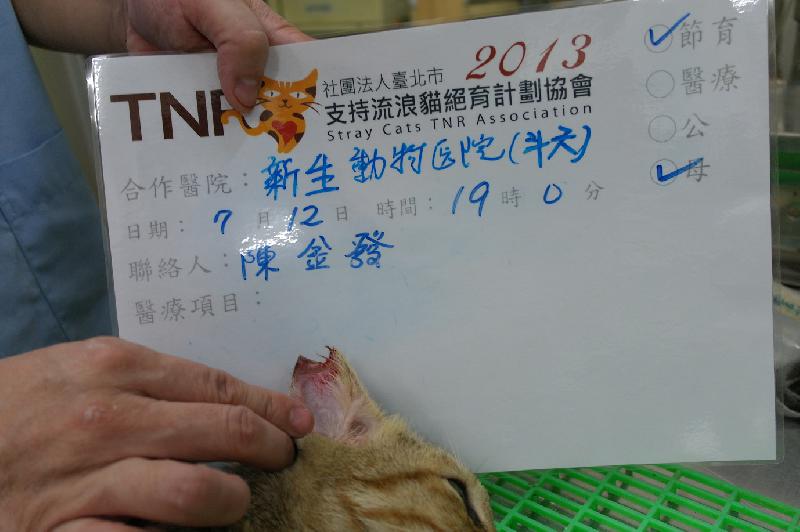 TNR 社團法人臺北市 2013
支持流浪貓絕育計劃協會
Stray Cats TNR Association
節育
醫療
公
母
合作醫院：新生動物医院(斗六)
日期：7月12日 時間：19時0分
聯絡人：陳金發
醫療項目：